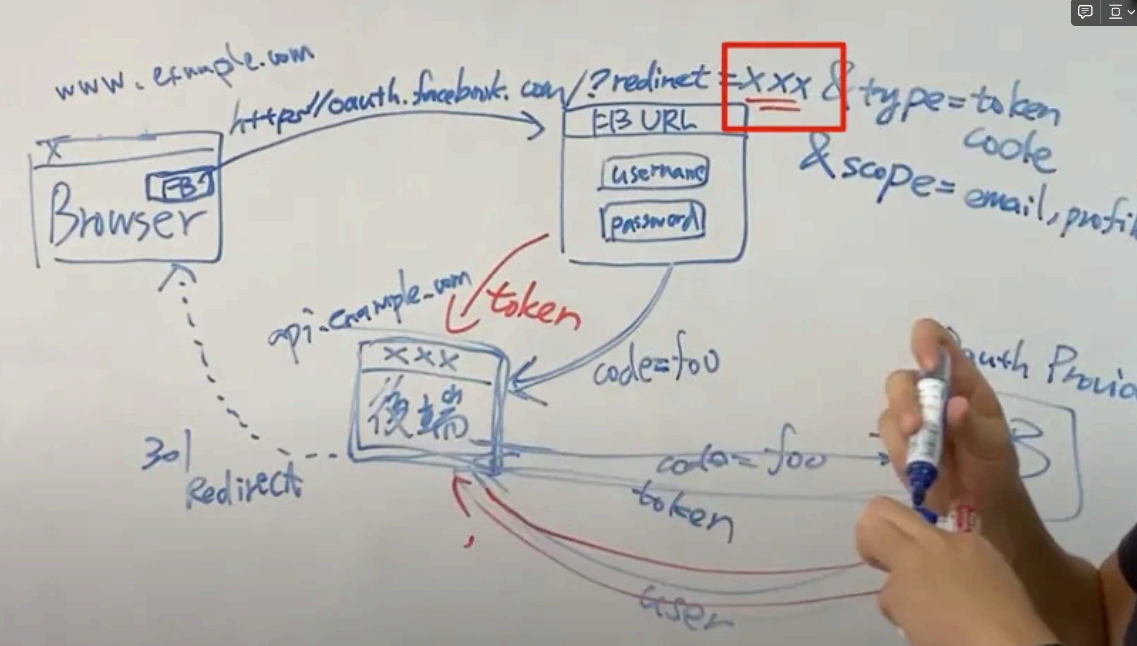 www.example.com
https://oauth.facebook.com/?redirect=xxx & type=token
code
& scope=email, profil
X
FB
Browser
FB URL
username
password
token
api.example.com
xxx
後端
code=foo
Oauth Provid
B
code=foo
token
301
Redirect
user